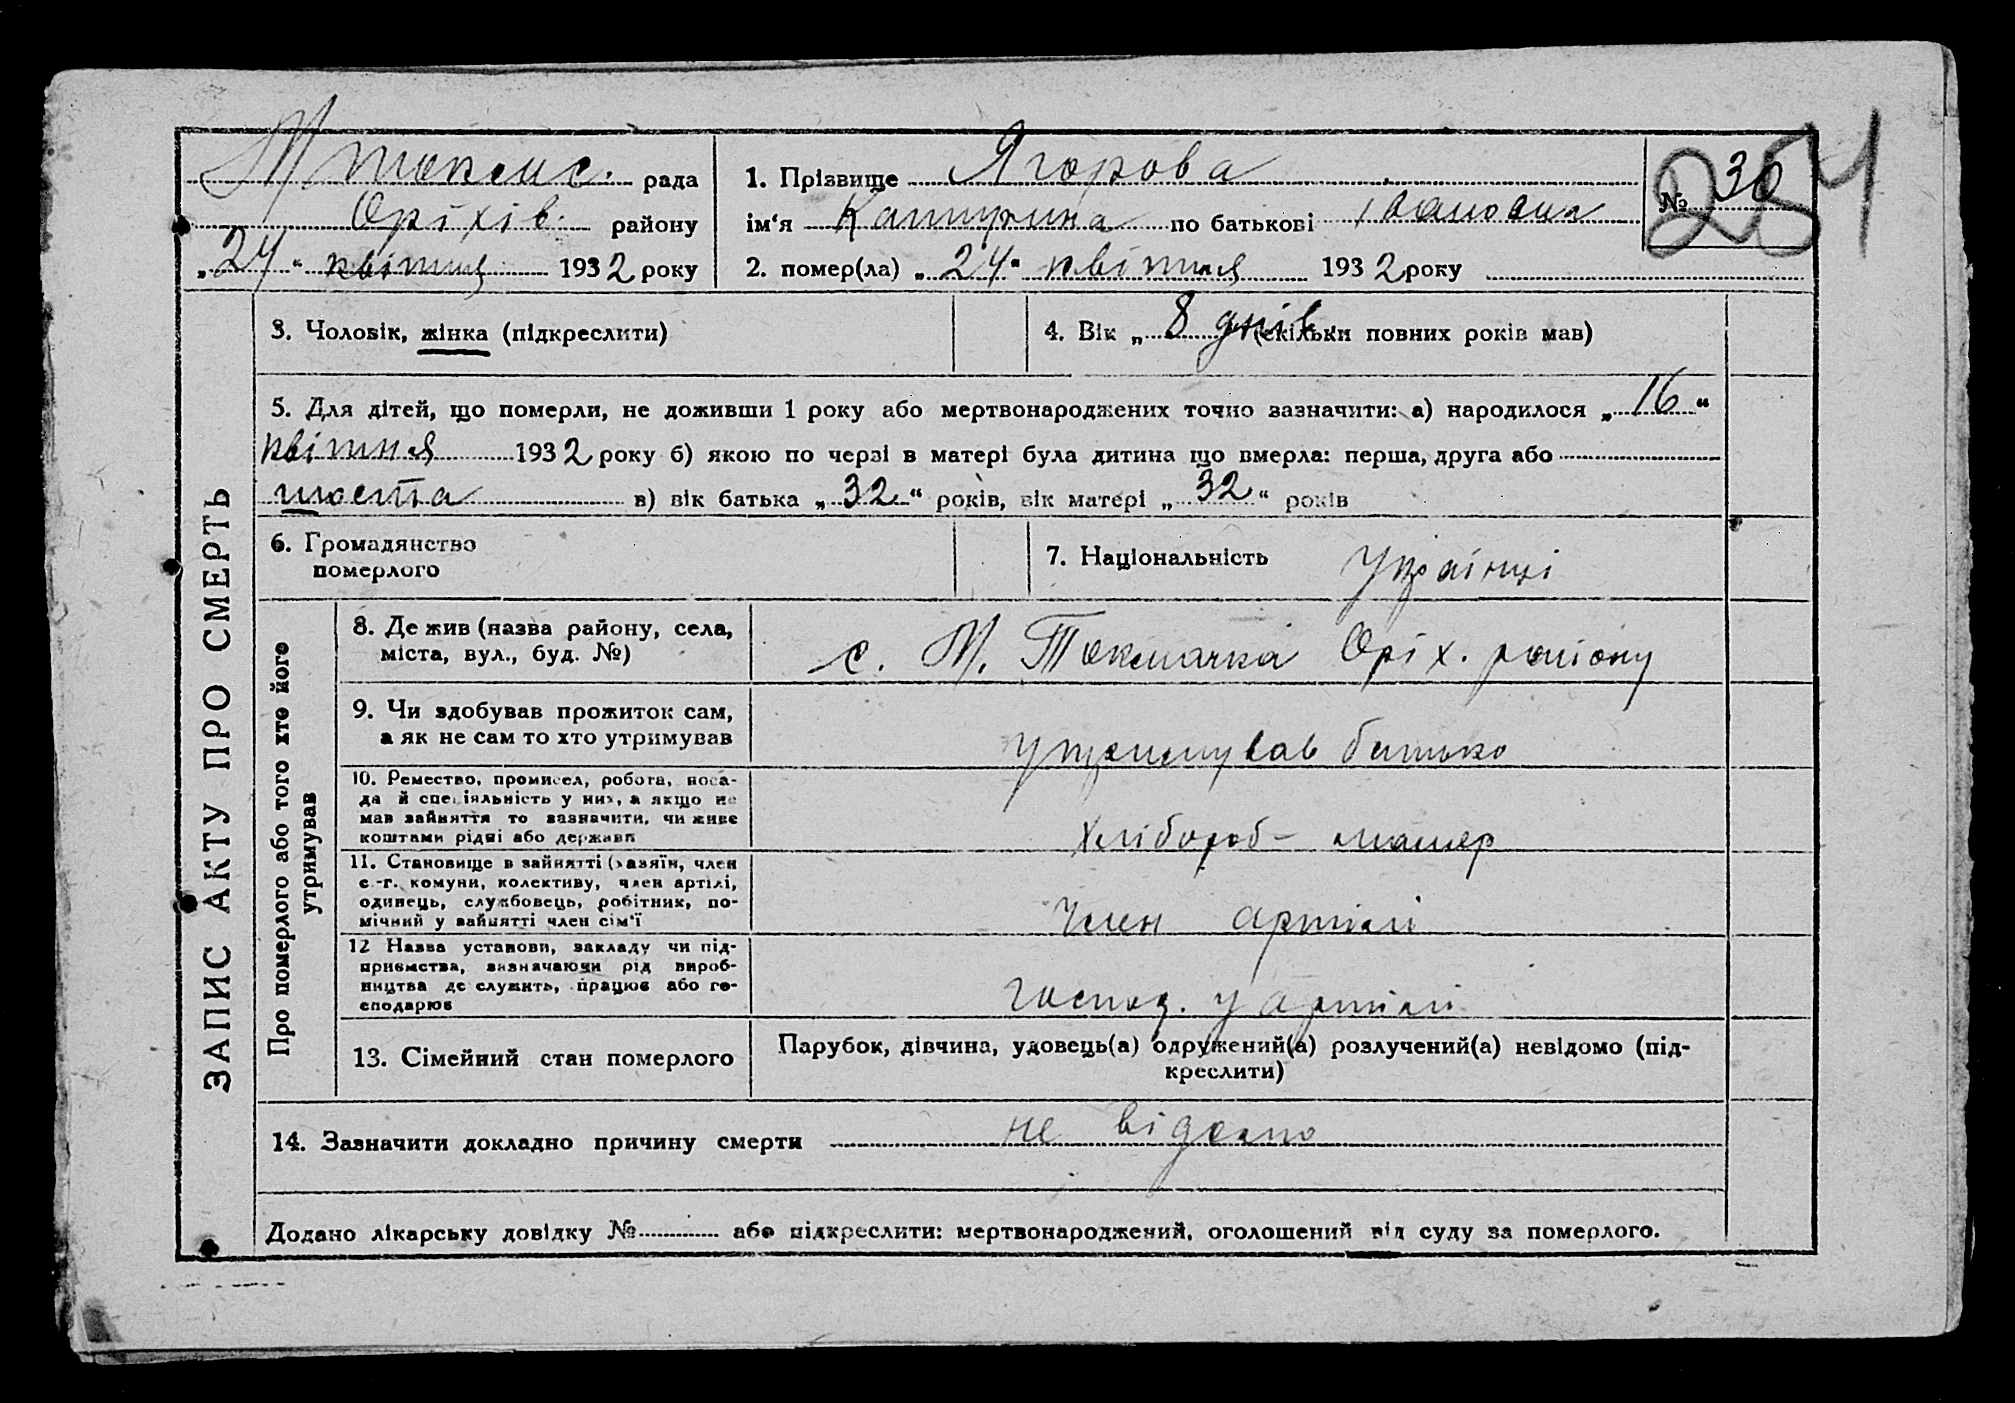 М токмас. рада
Оріхів. району
„24“ квітня 1932 року
1. Прізвище Ягорова
ім'я Катирина по батькові івановна
2. помер(ла) „24“ квітня 1932 року
№ 30
254
ЗАПИС АКТУ ПРО СМЕРТЬ
3. Чоловік, жінка (підкреслити)
4. Вік „8 днів (скільки повних років мав)
5. Для дітей, що померли, не доживши 1 року або мертвонароджених точно зазначити: а) народилося „16“
квітня 1932 року б) якою по черзі в матері була дитина що вмерла: перша, друга або
шоста в) вік батька „32“ років, вік матері „32“ років
6. Громадянство
померлого
7. Національність Українці
Про померлого або того хто його
утримував
8. Де жив (назва району, села,
міста, вул., буд. №)
с. М. Токмачка Оріх. району
9. Чи здобував прожиток сам,
а як не сам то хто утримував
утримував батько
10. Ремество, промисел, робота, поса-
да й спеціяльність у них, а якщо не
мав зайняття то зазначити, чи живе
коштами рідні або держави
Хлібороб-
11. Становище в зайнятті (хазяїн, член
с.-г. комуни, колективу, член артілі,
одинець, службовець, робітник, по-
мічний у зайнятті член сім'ї
Член артілі
12 Назва установи, закладу чи під-
приємства, зазначаючи рід вироб-
ництва де служить, працює або го-
сподарює
Господ. у артілі
13. Сімейний стан померлого
Парубок, дівчина, удовець(а) одружений(а) розлучений(а) невідомо (під-
креслити)
14. Зазначити докладно причину смерти не відомо
Додано лікарську довідку № або підкреслити: мертвонароджений, оголошений від суду за померлого.